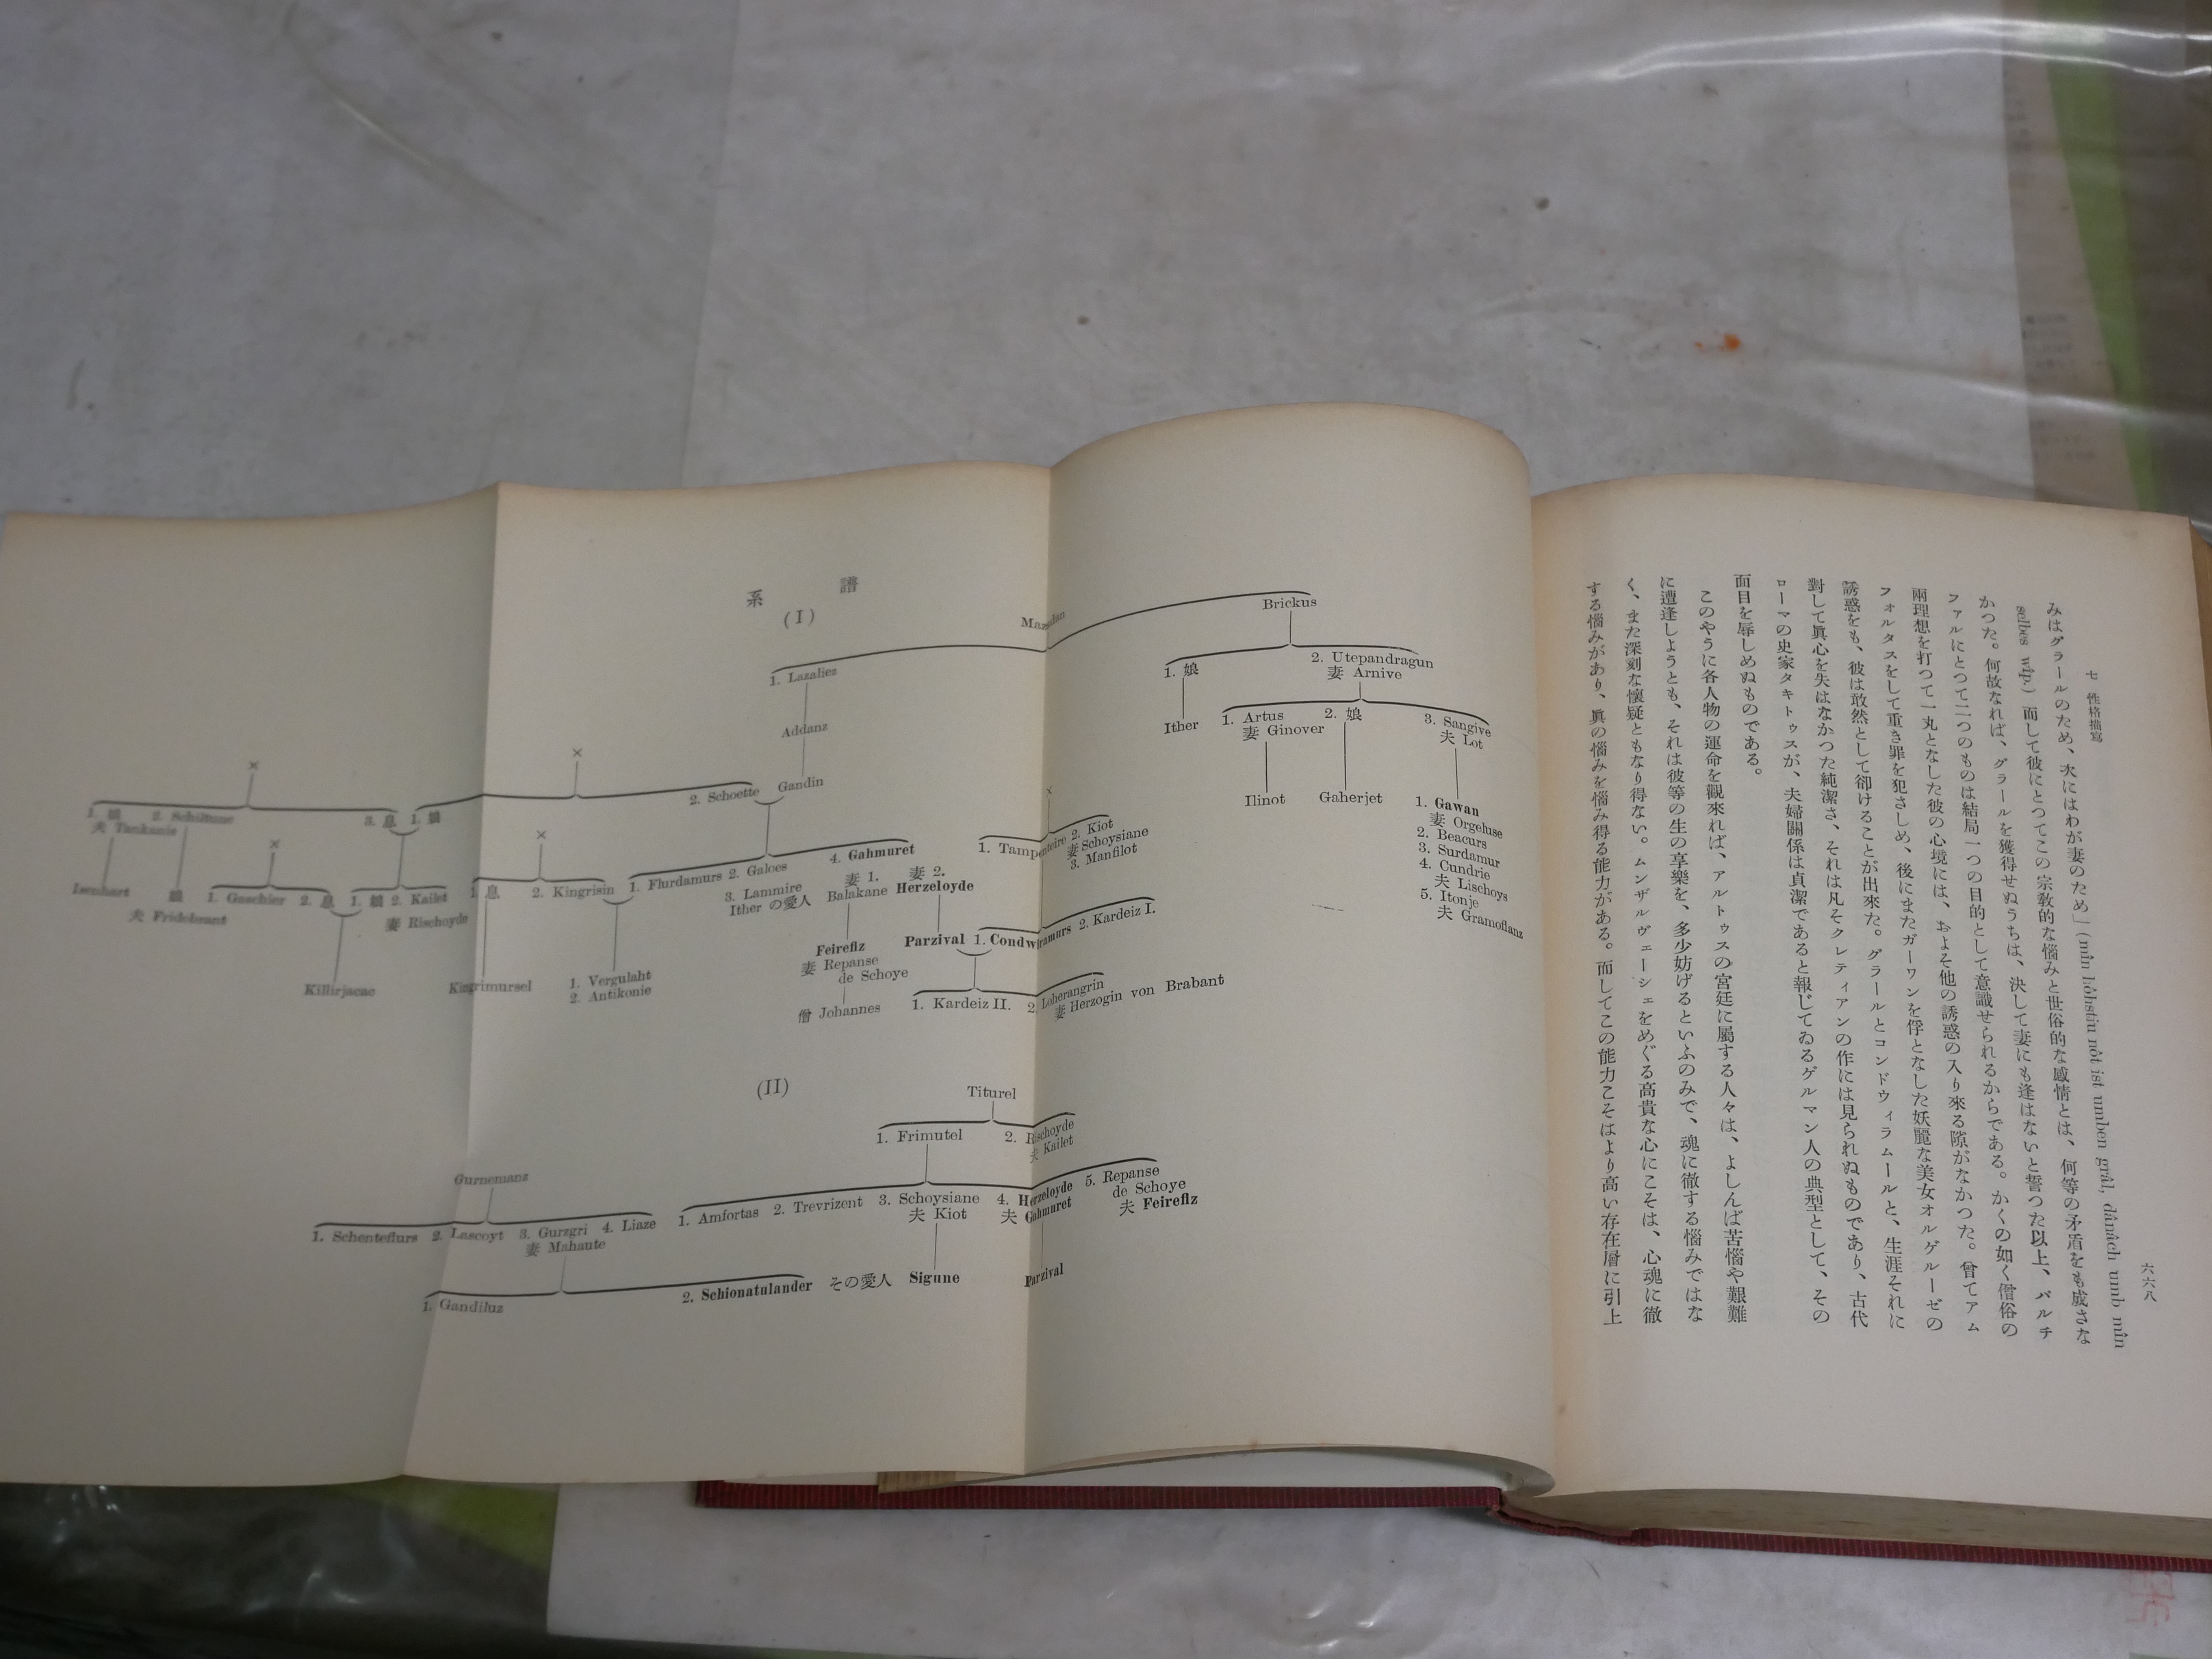 七 性格描寫
六六八
みはグラールのため、次にはわが妻のため」(mîn hôhstiu nôt ist umben grâl, dânâch umb mîn
selbes wîp.) 而して彼にとつてこの宗教的な惱みと世俗的な感情とは、何等の矛盾をも成さな
かつた。何故なれば、グラールを獲得せぬうちは、決して妻にも逢はないと誓つた以上、パルチ
ファルにとつて二つのものは結局一つの目的として意識せられるからである。かくの如く僧俗の
兩理想を打つて一丸となした彼の心境には、およそ他の誘惑の入り來る隙がなかつた。曾てアム
フォルタスをして重き罪を犯さしめ、後にまたガーワンを俘となした妖麗な美女オルゲルーゼの
誘惑をも、彼は敢然として卻けることが出來た。グラールとコンドウィラムールと、生涯それに
對して眞心を失はなかつた純潔さ、それは凡そクレティアンの作には見られぬものであり、古代
ローマの史家タキトゥスが、夫婦關係は貞潔であると報じてゐるゲルマン人の典型として、その
面目を辱しめぬものである。
このやうに各人物の運命を觀來れば、アルトゥスの宮廷に屬する人々は、よしんば苦惱や艱難
に遭逢しようとも、それは彼等の生の享樂を、多少妨げるといふのみで、魂に徹する惱みではな
く、また深刻な懷疑ともなり得ない。ムンザルヴェーシェをめぐる高貴な心にこそは、心魂に徹
する惱みがあり、眞の惱みを惱み得る能力がある。而してこの能力こそはより高い存在層に引上
系 譜
(I)
Mazadan
Brickus
1. Lazaliez
1. 娘 2. Utepandragun
妻 Arnive
Addanz
Ither
1. Artus 2. 娘 3. Sangive
妻 Ginover 夫 Lot
× ×
2. Schoette Gandin
Ilinot Gaherjet
1. Gawan
妻 Orgeluse
2. Beacurs
3. Surdamur
4. Cundrie
夫 Lischoys
5. Itonje
夫 Gramoflanz
1. 娘 2. Schiltune 3. 息 1. 娘
夫 Tankanie
×
×
×
1. Tampenteire 2. Kiot
妻 Schoysiane
3. Manfilot
Isenhart 娘
夫 Fridebrant
1. Gaschier 2. 息 1. 娘 2. Kailet
妻 Rischoyde
1. 息 2. Kingrisin
1. Flurdamurs 2. Galoes
3. Lammire
Ither の愛人
4. Gahmuret
妻 1. 妻 2.
Balakane Herzeloyde
Killirjacac
Kingrimursel
1. Vergulaht
2. Antikonie
Feirefiz
妻 Repanse
de Schoye
Parzival 1. Condwiramurs 2. Kardeiz I.
僧 Johannes
1. Kardeiz II. 2. Loherangrin
妻 Herzogin von Brabant
(II)
Titurel
1. Frimutel 2. Rischoyde
夫 Kailet
Gurnemanz
1. Amfortas 2. Trevrizent 3. Schoysiane 4. Herzeloyde 5. Repanse
de Schoye
夫 Kiot 夫 Gahmuret 夫 Feirefiz
1. Schenteflurs 2. Lascoyt 3. Gurzgri 4. Liaze
妻 Mahaute
1. Gandiluz 2. Schionatulander その愛人 Sigune Parzival